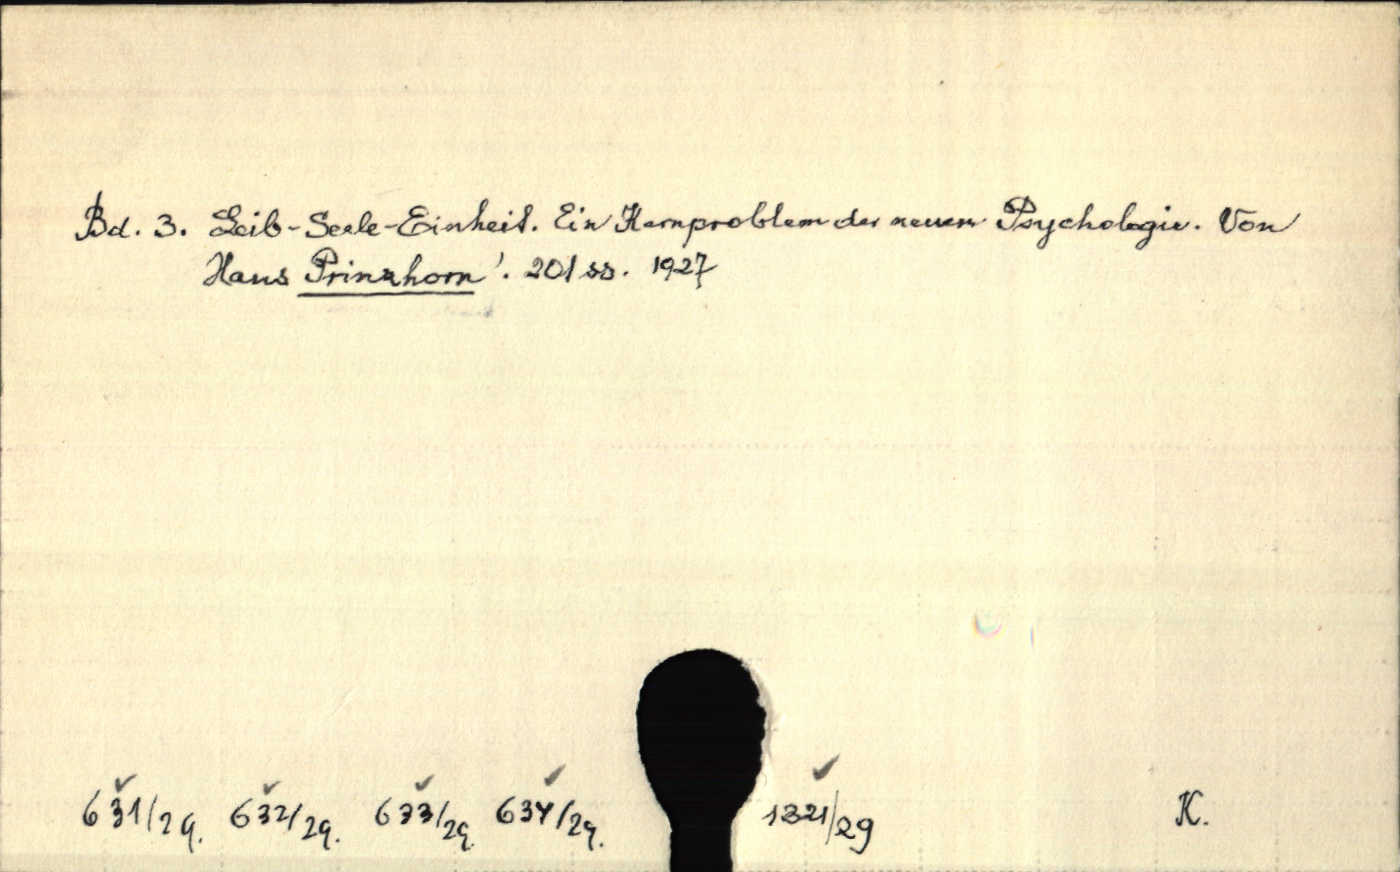 Bd. 3. Leib-Seele-Einheit. Ein Kernproblem der neuen Psychologie. Von
Hans Prinzhorn. 201 ss. 1927
631/29. 632/29. 633/29. 634/29. 1321/29 K.